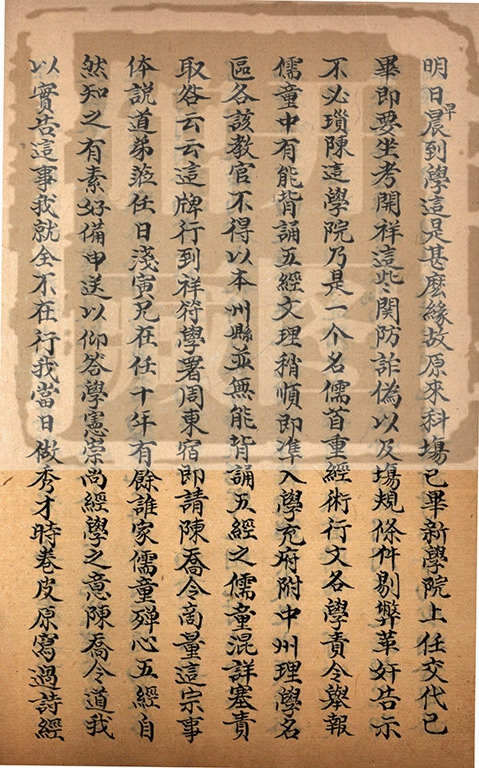 明日早晨到學這是甚麼緣故原來科塲已畢新學院上任交代已
畢即要坐考開祥這些関防詐偽以及塲規條件剔弊革奸告示
不必瑣陳這學院乃是一个名儒首重經術行文各學責令舉報
儒童中有能背誦五經文理稍順即準入學充府附中州理學名
區各該教官不得以本州縣並無能背誦五經之儒童混詳塞責
取咎云云這牌行到祥符學署周東宿即請陳喬令商量這宗事
体說道弟蒞任日淺寅兄在任十年有餘誰家儒童殫心五經自
然知之有素好備申送以仰答學憲崇尚經學之意陳喬令道我
以實告這事我就全不在行我當日做秀才時卷皮原寫過詩經